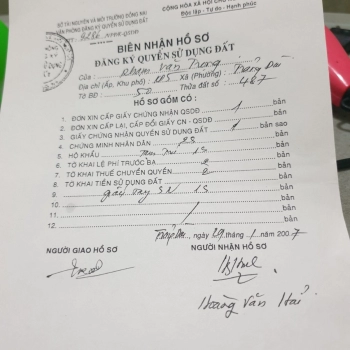 CỘNG HÒA XÃ HỘI CH
Độc lập - Tự do - Hạnh phúc
SỞ TÀI NGUYÊN VÀ MÔI TRƯỜNG ĐỒNG NAI
VĂN PHÒNG ĐĂNG KÝ QUYỀN SỬ DỤNG ĐẤT
BIÊN NHẬN HỒ SƠ
ĐĂNG KÝ QUYỀN SỬ DỤNG ĐẤT
Của : Phạm Văn Trong
Địa chỉ (Ấp, Khu phố) : KP5 Xã (Phường) : Trảng Dài
Tờ BĐ : 50 Thửa đất số : 467
HỒ SƠ GỒM CÓ :
1. ĐƠN XIN CẤP GIẤY CHỨNG NHẬN QSDĐ 1 bản
2. ĐƠN XIN CẤP LẠI, CẤP ĐỔI GIẤY CN - QSDĐ bản
3. GIẤY CHỨNG NHẬN QUYỀN SỬ DỤNG ĐẤT 1 bản sao
4. CHỨNG MINH NHÂN DÂN 2S bản
5. HỘ KHẨU 1S bản
6. TỜ KHAI LỆ PHÍ TRƯỚC BẠ 2 bản
7. TỜ KHAI THUẾ CHUYỂN QUYỀN 2 bản
8. TỜ KHAI TIỀN SỬ DỤNG ĐẤT bản
9. giấy SN 1S bản
10. bản
11. bản
12. bản
ngày 29 tháng 1 năm 2007
NGƯỜI GIAO HỒ SƠ NGƯỜI NHẬN HỒ SƠ
Hoàng Văn Hải